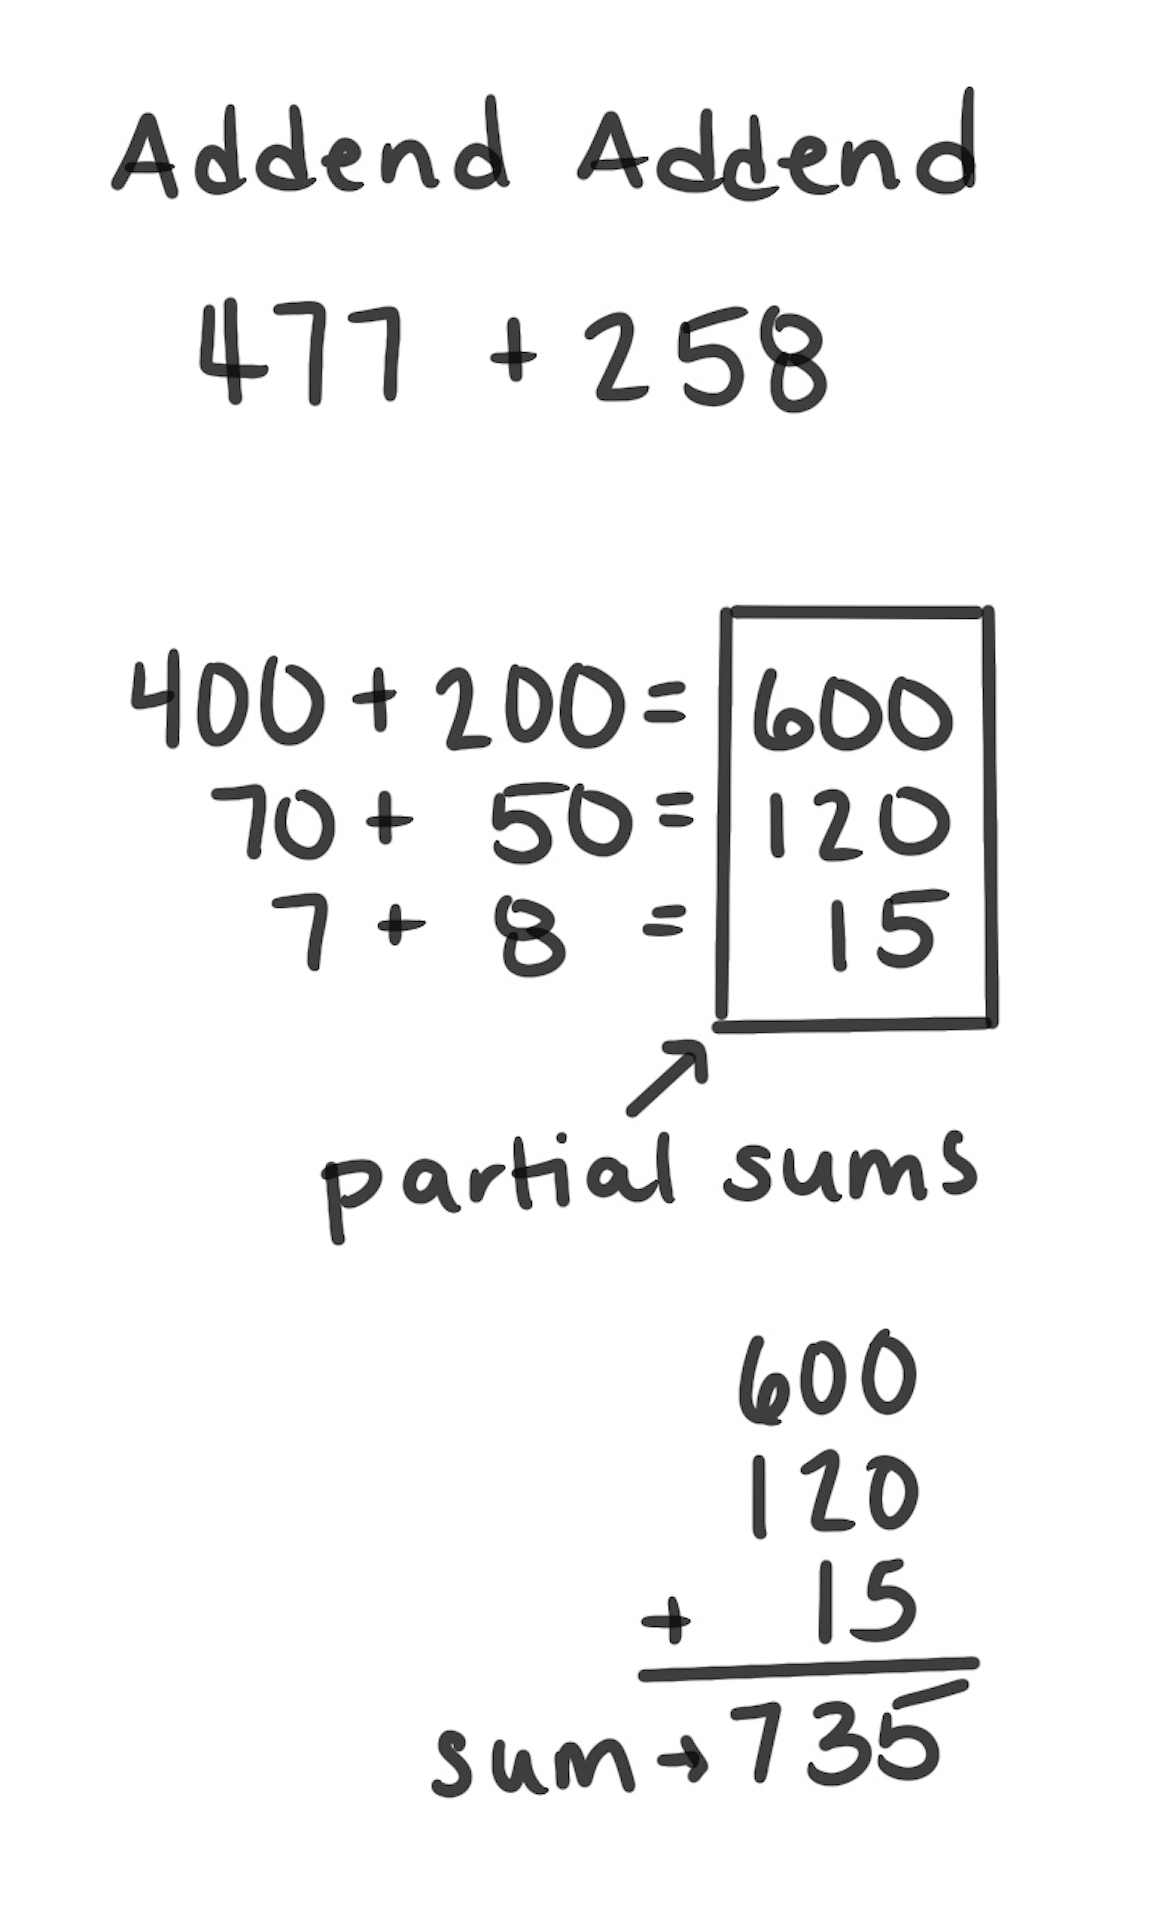 Addend Addend
477 + 258
400 + 200 = 600
70 + 50 = 120
7 + 8 = 15
partial sums
600
120
+ 15
sum → 735